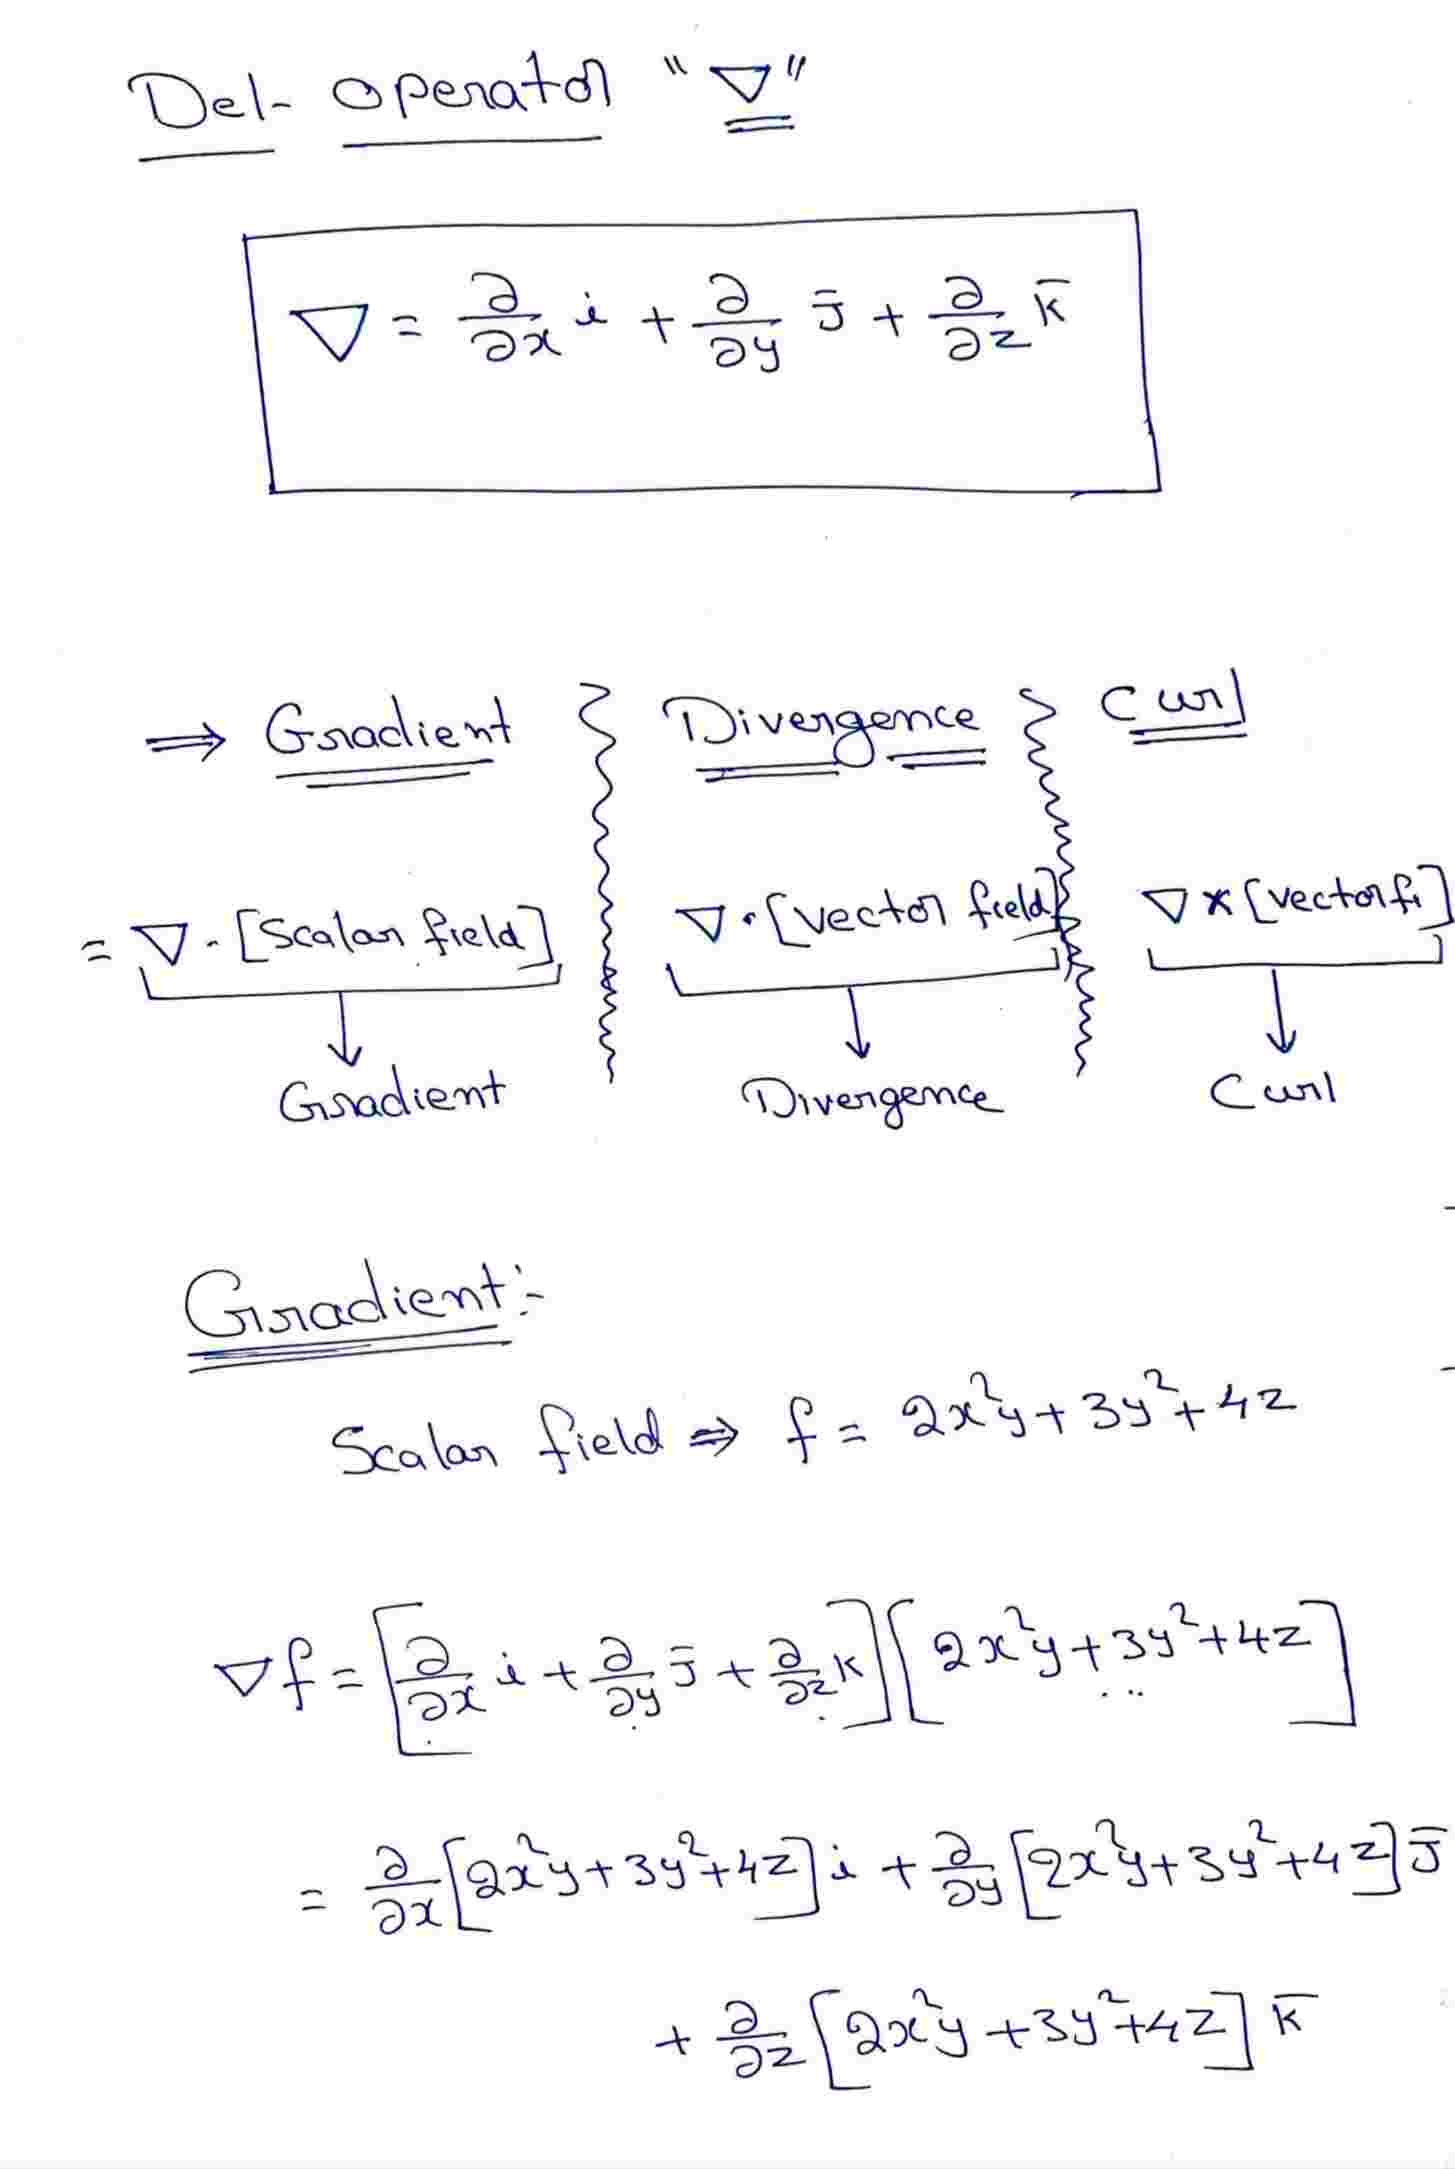 Del- operator "∇"
∇ = ∂/∂x i + ∂/∂y j̄ + ∂/∂z k̄
⇒ Gradient Divergence Curl
= ∇ · [Scalar field] ∇ · [vector field] ∇ × [vector fi]
Gradient Divergence Curl
Gradient :-
Scalar field ⇒ f = 2x²y + 3y² + 4z
∇f = [∂/∂x i + ∂/∂y j̄ + ∂/∂z k] [2x²y + 3y² + 4z]
= ∂/∂x [2x²y + 3y² + 4z] i + ∂/∂y [2x²y + 3y² + 4z] j̄
+ ∂/∂z [2x²y + 3y² + 4z] k̄